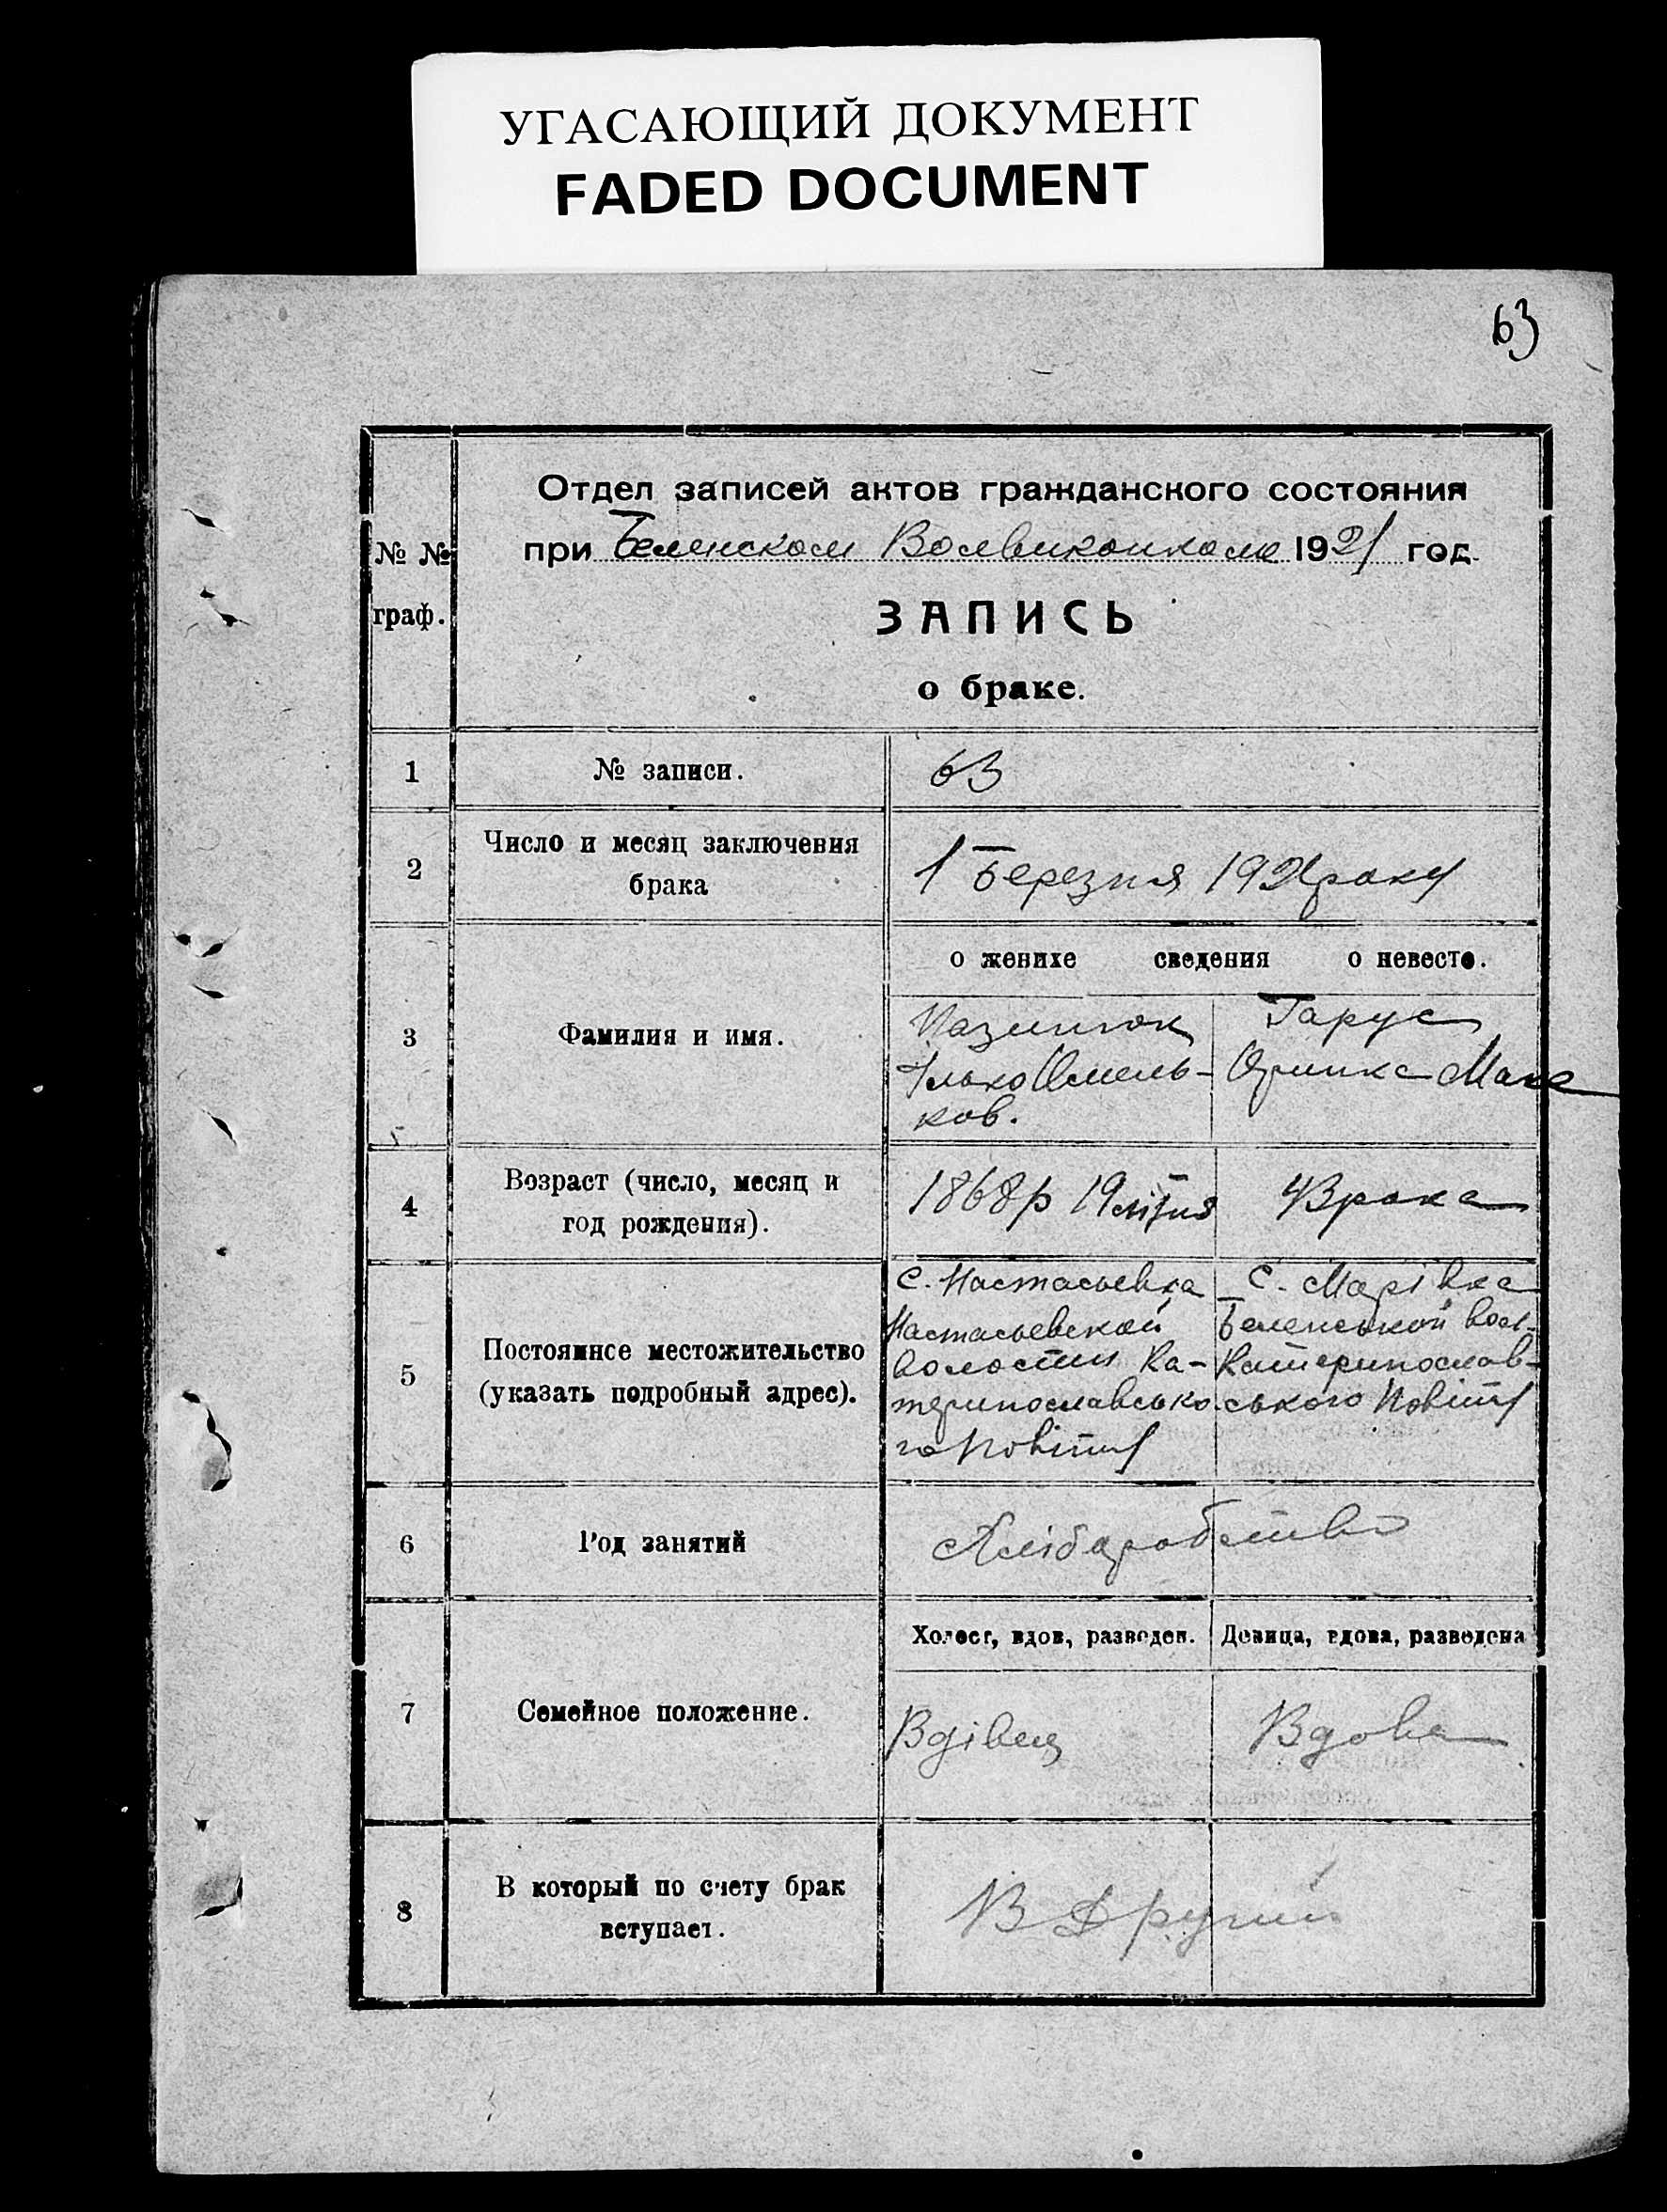 УГАСАЮЩИЙ ДОКУМЕНТ
FADED DOCUMENT
63
№ №
граф.
Отдел записей актов гражданского состояния
при Беленском Волвиконкоме 1921 год
ЗАПИСЬ
о браке.
1
№ записи.
63
2
Число и месяц заключения
брака
1 Березня 1921 року
3
Фамилия и имя.
о женихе сведения о невесте.
Ілько Омель-
ков.
Гарус
Оринка
4
Возраст (число, месяц и
год рождения).
1868р 19 липня
43 рока
5
Постоянное местожительство
(указать подробный адрес).
с. Настасьевка
Настасьевской
волости Ка-
теринославсько
го повіту
с. Марівка
Беленської вол.
Катеринослав-
ського повіту
6
Род занятий
Хлібаробство
7
Семейное положение.
Холост, вдов, разведен.
Вдівец
Девица, вдова, разведена
Вдова
8
В который по счету брак
вступает.
В другий